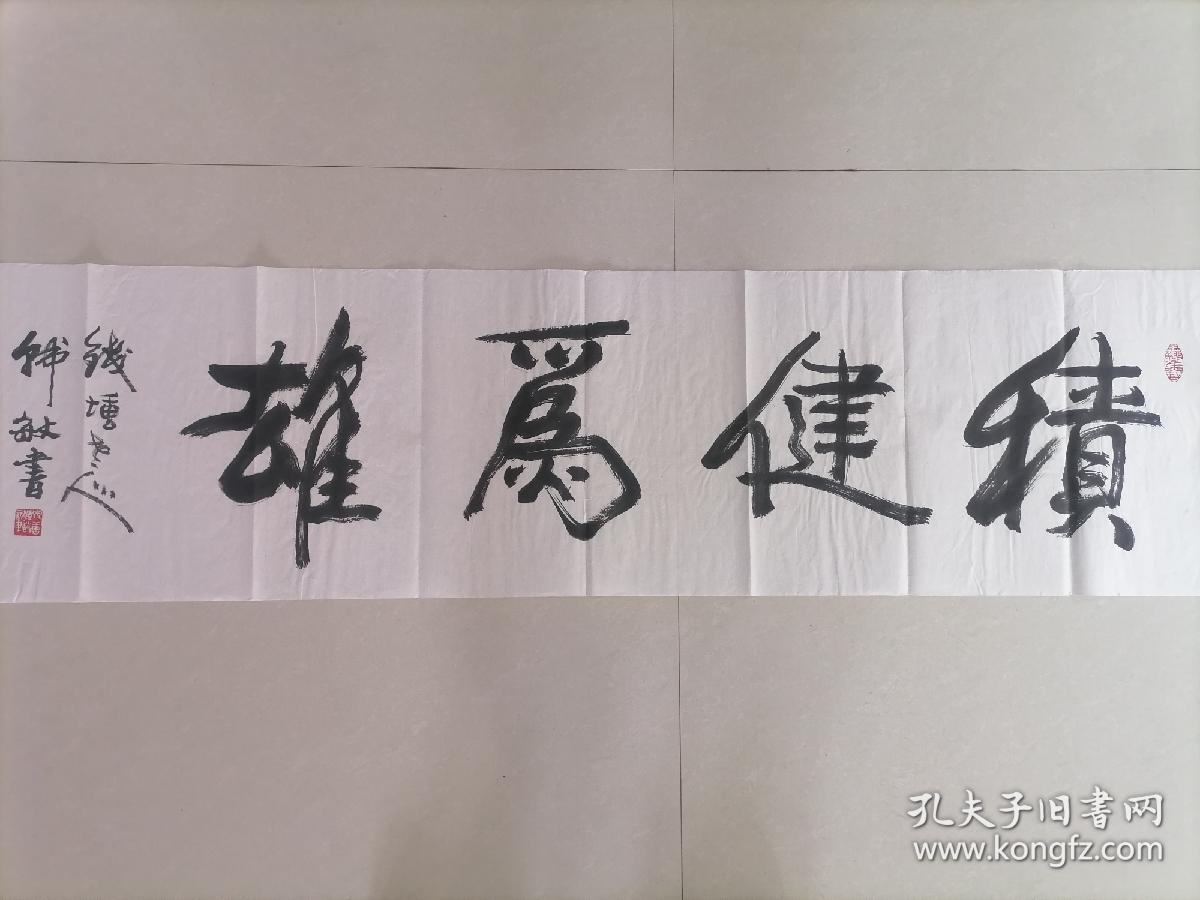 積健為雄
錢塘老人
韩敏書
孔夫子旧书网
www.kongfz.com